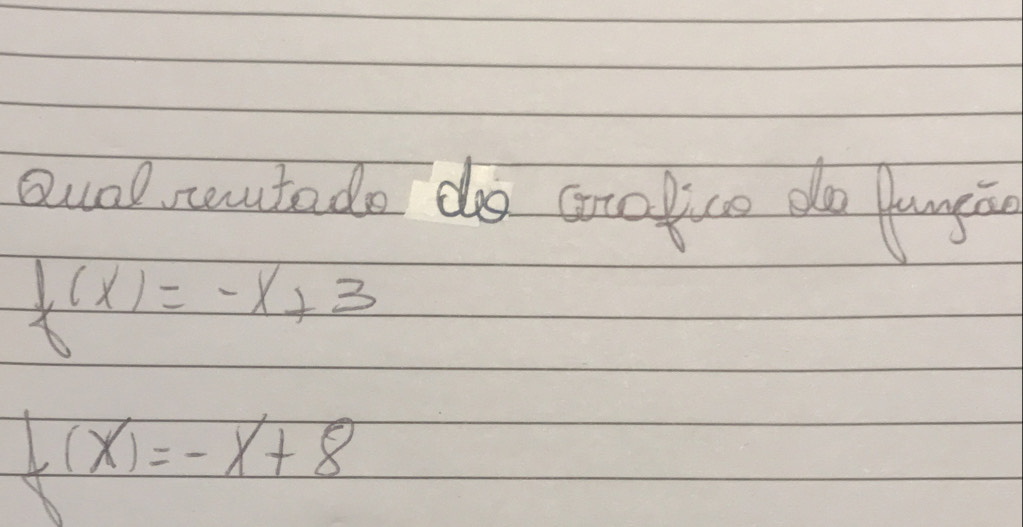 Qual reutado do Grafico da função
f(x) = -x+3
f(x) = -x+8